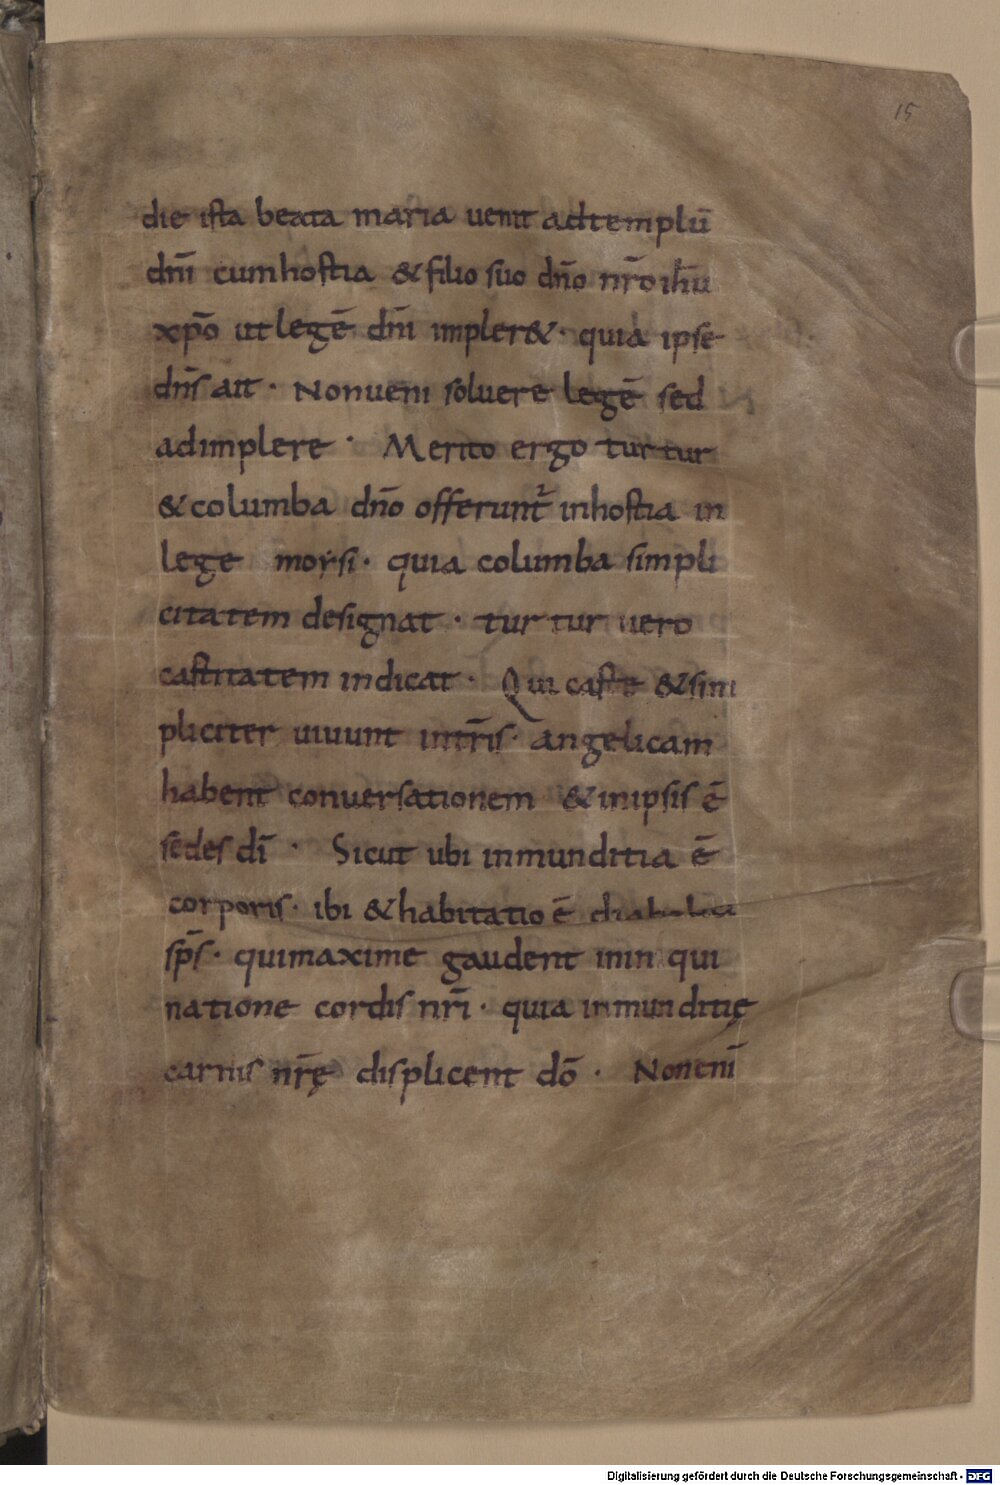 15
die ista beata maria uenit adtemplū
dn̄i cumhostia & filio suo dn̄o nr̄o ih̄u
xp̄o ut legē dn̄i impler&· quia ipse
dn̄s ait · Nonueni soluere legē sed
adimplere · Merito ergo turtur
& columba dn̄o offerunt᷑ inhostia in
lege moysi· quia columba simpli
citatem designat · turtur uero
castitatem indicat · Qui caste & sim
pliciter uiuunt intr̄is· angelicam
habent conuersationem & inipsis ē
sedes dī · Sicut ubi inmunditia ē
corporis· ibi & habitatio ē
sp̄s· quimaxime gaudent inin qui
natione cordis nr̄i · quia inmunditię
carnis nr̄ę displicent dō · Nonenī
Digitalisierung gefördert durch die Deutsche Forschungsgemeinschaft - DFG